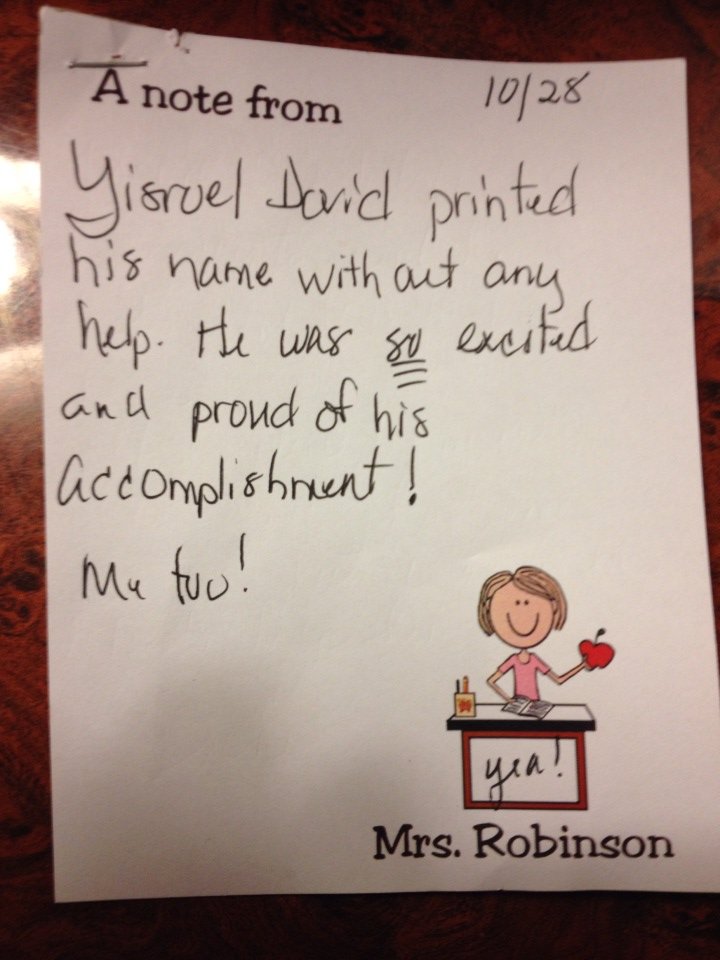 A note from
10/28
Yisroel David printed
his name without any
help. He was so excited
and proud of his
accomplishment!
Me too!
yea!
Mrs. Robinson